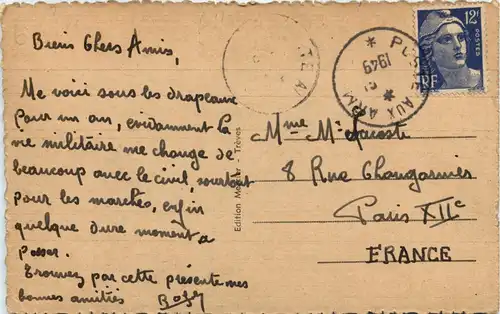 Biens Chers Amis,
Me voici sous les drapeaux
pour un an, evidamment la
vie militaire me change de
beaucoup avec le civil, surtout
pour les marches, enfin
quelque dure moment a
passer.
Trouvez par cette présente mes
bonnes amitiés
Edition - Trèves
12F
POSTES
RF
POSTE AUX ARM
1949
Mme Mr Lacoste
8 Rue Changarnier
Paris XIIe
FRANCE